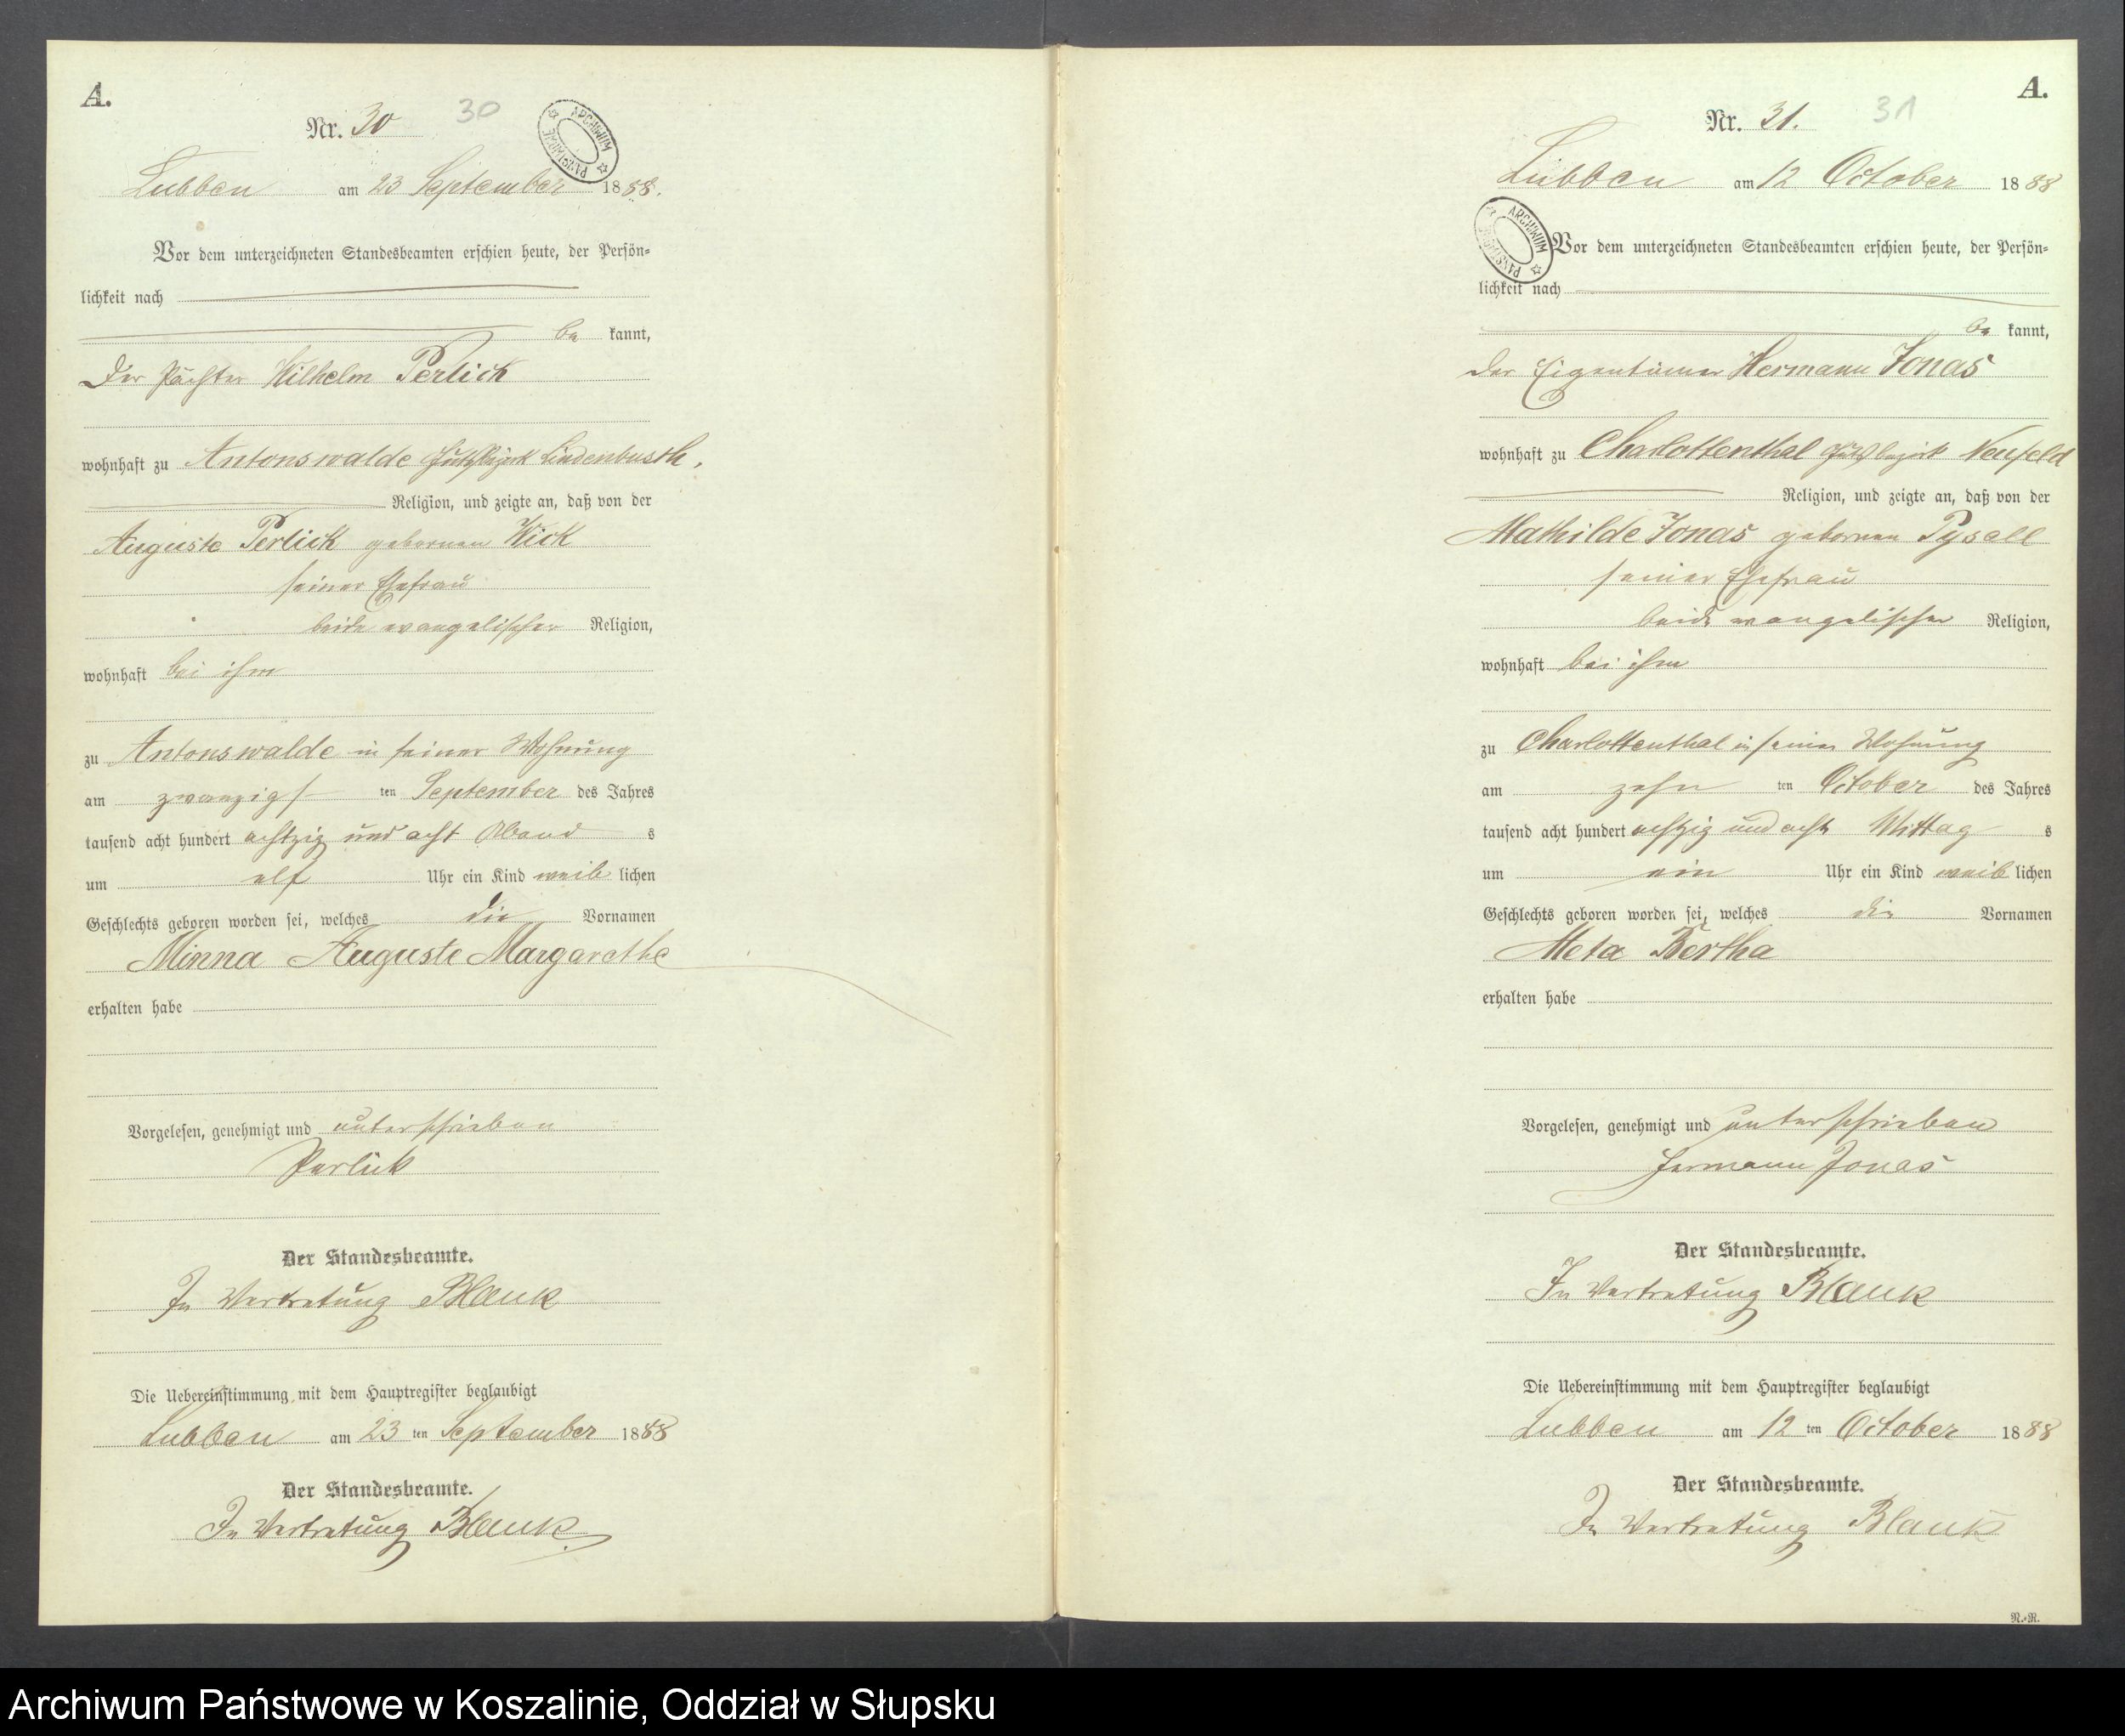 A.
Nr. 30 30
ARCHIWUM PAŃSTWOWE
Lubben am 23 September 1888.
Vor dem unterzeichneten Standesbeamten erschien heute, der Persön-
lichkeit nach
be kannt,
Der Pächter Wilhelm Perlick
wohnhaft zu Antonswalde Gutsbezirk Lindenbusch,
Religion, und zeigte an, daß von der
Auguste Perlick gebornen Wick
seiner Ehefrau
beide evangelischer Religion,
wohnhaft bei ihm
zu Antonswalde in seiner Wohnung
am zwanzigs ten September des Jahres
tausend acht hundert achtzig und acht Abend s
um elf Uhr ein Kind weib lichen
Geschlechts geboren worden sei, welches die Vornamen
Minna Auguste Margarethe
erhalten habe
Vorgelesen, genehmigt und unterschrieben
Perlick
Der Standesbeamte.
In Vertretung Blank
Die Uebereinstimmung mit dem Hauptregister beglaubigt
Lubben am 23 ten September 1888
Der Standesbeamte.
In Vertretung Blank
A.
Nr. 31. 31
Lübben am 12 October 1888
ARCHIWUM PAŃSTWOWE
Vor dem unterzeichneten Standesbeamten erschien heute, der Persön-
lichkeit nach
be kannt,
der Eigentümer Hermann Jonas
wohnhaft zu Charlottenthal Gutsbezirk Neufeld
Religion, und zeigte an, daß von der
Mathilde Jonas gebornen Pysall
seiner Ehefrau
beide evangelischer Religion,
wohnhaft bei ihm
zu Charlottenthal in seiner Wohnung
am zehn ten October des Jahres
tausend acht hundert achtzig und acht Mittag s
um ein Uhr ein Kind weib lichen
Geschlechts geboren worden sei, welches die Vornamen
Meta Bertha
erhalten habe
Vorgelesen, genehmigt und unterschrieben
Hermann Jonas
Der Standesbeamte.
In Vertretung Blank
Die Uebereinstimmung mit dem Hauptregister beglaubigt
Lubben am 12 ten October 1888
Der Standesbeamte.
In Vertretung Blank
N.-R.
Archiwum Państwowe w Koszalinie, Oddział w Słupsku